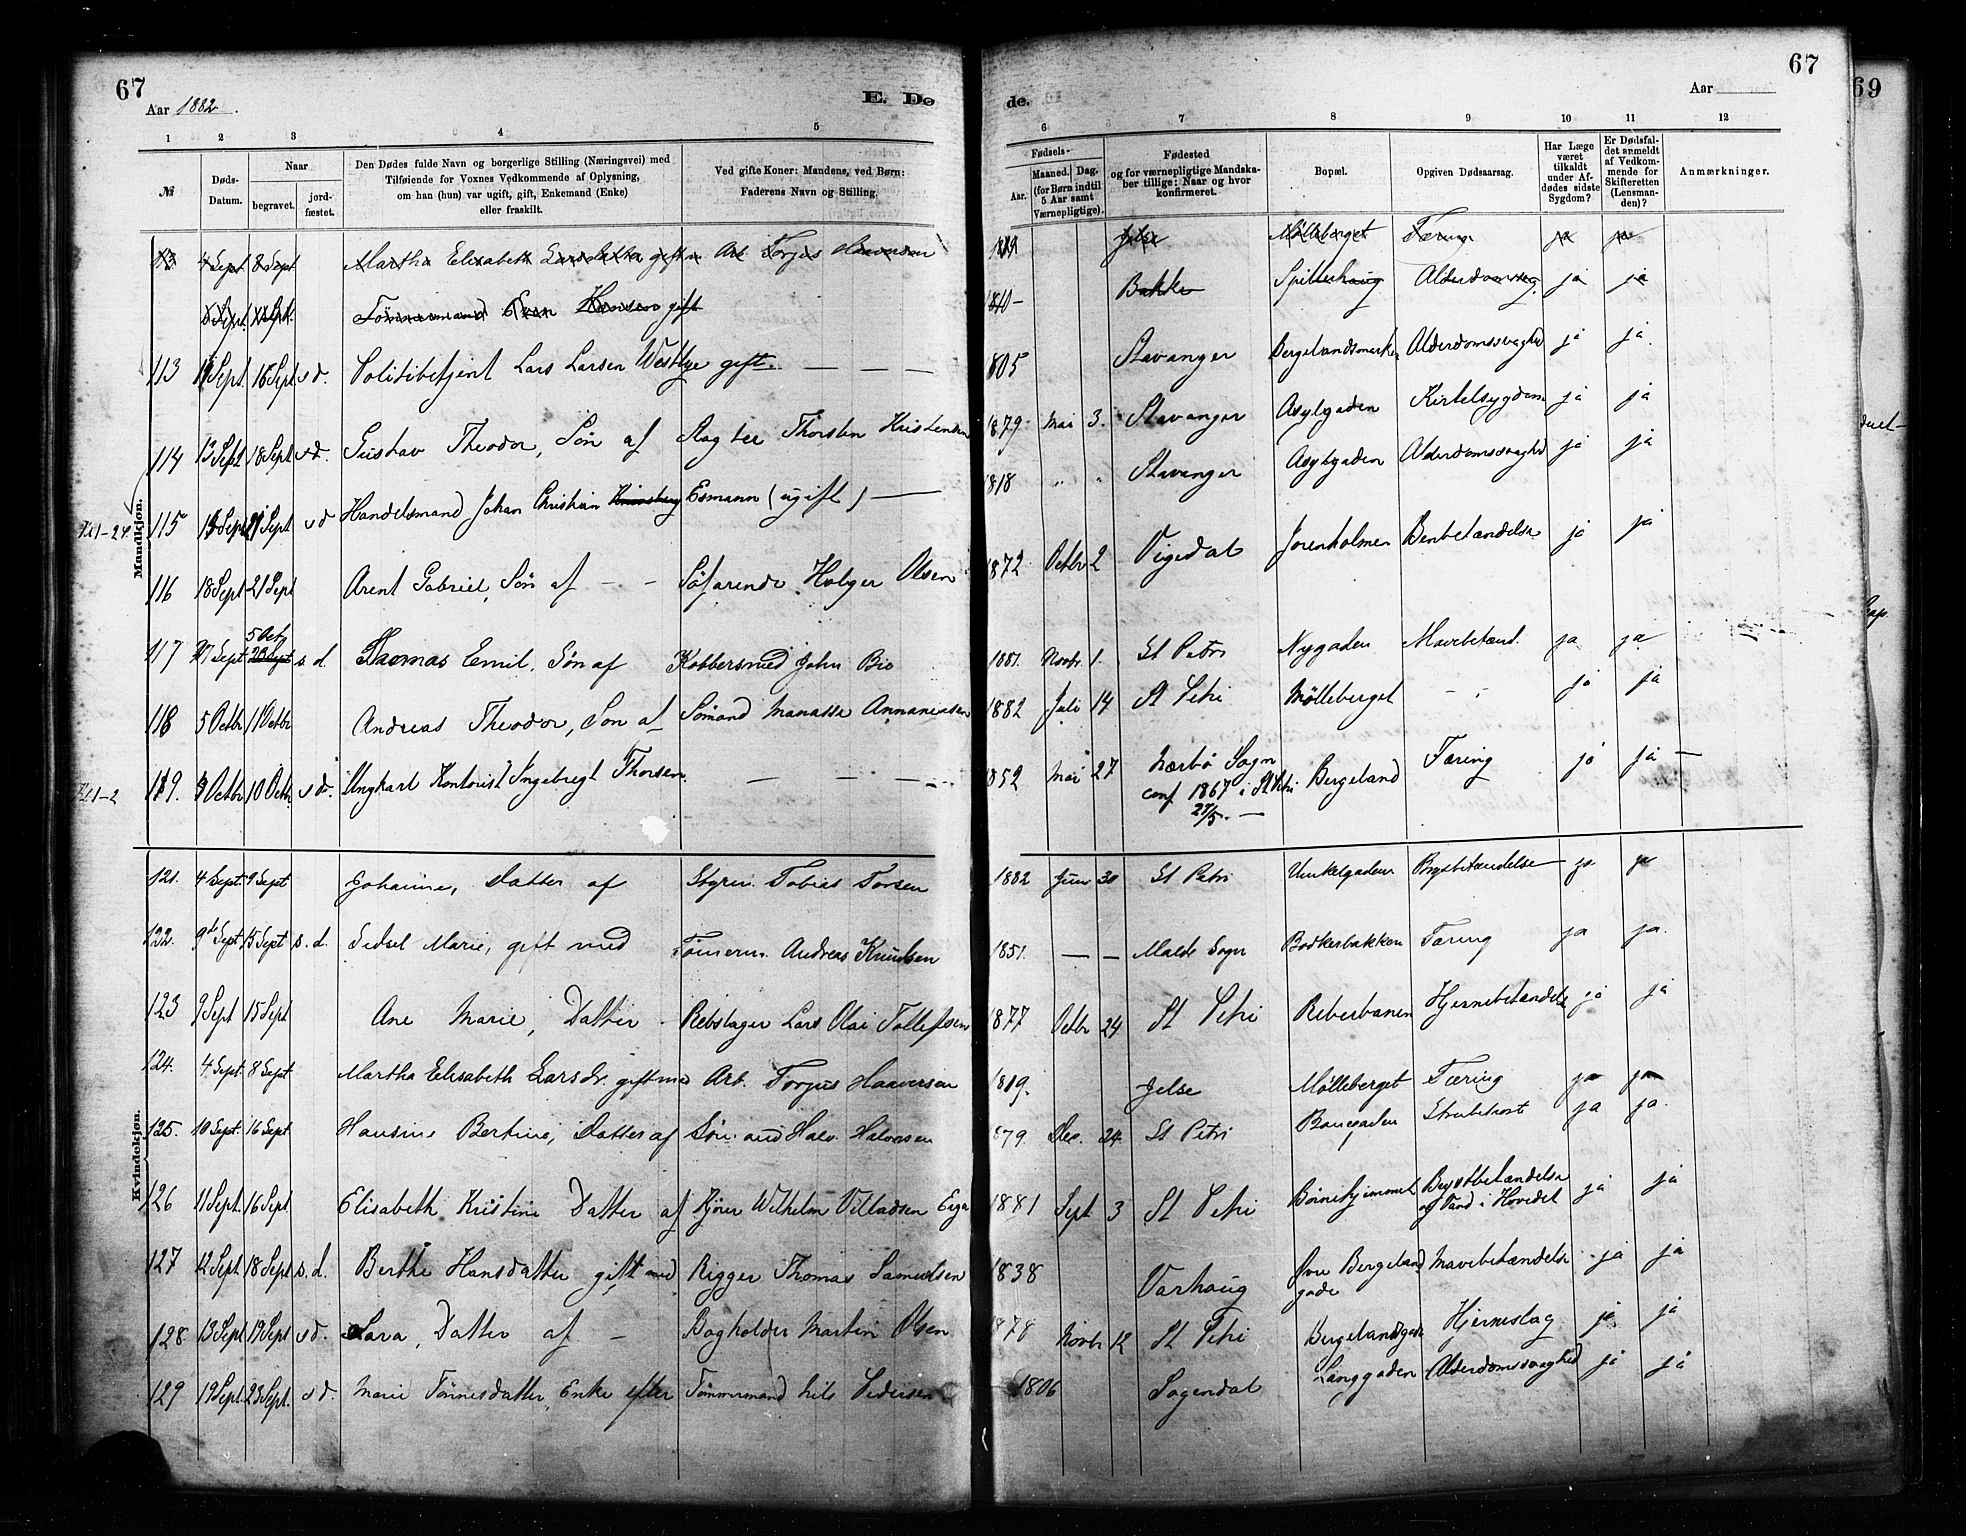 67
Aar 1882
E. Dø
1 2 3 4 5
№
Døds-Datum.
Naar
begravet.
jord-fæstet.
Den Dødes fulde Navn og borgerlige Stilling (Næringsvei) med
Tilføiende for Voxnes Vedkommende af Oplysning,
om han (hun) var ugift, gift, Enkemand (Enke)
eller fraskilt.
Ved gifte Koner: Mandens, ved Børn:
Faderens Navn og Stilling.
4 Sept 8 Sept Martha Elisabeth Larsdatter gift m Arb Torjus Haaversen
Tømmermand Hansen gift
113 Sept 16 Sept s d. Politibetjent Lars Larsen Westlye gift. — — —
114 13 Sept 18 Sept s d. Gustav Theodor, Søn af Slagter Thorsten Kristensen
Mandkjøn.
115 Sept 21 Sept s d Handelsmand Johan Christian Esmann (ugift) —
116 18 Sept 21 Sept Arent Gabriel, Søn af - - Søfarende Holger Olsen
5 Oct
117 27 Sept s. d. Thomas Emil, Søn af Kobbersmed John Bio
118 5 Octbr 11 Octbr Andreas Theodor, Søn af Sømand Manasse Annaniassen
119. 3 Octbr 10 Octbr s d. Ungkarl Kontorist Ingebregt Thorsen. — — —
121. 4 Sept. 9 Sept Johanne, Datter af Styrm. Tobias Torsen
122. 9 Sept 15 Sept s. d. Sidsel Marie, gift med Tømerm. Andreas Knudsen
123 9 Sept 15 Sept Ane Marie, Datter - Rebslager Lars Olai Tollefsen
124. 4 Sept. 8 Sept Martha Elisabeth Larsdr. gift med Arb. Torjus Haaversen
Kvindekjøn.
125. 10 Sept. 16 Sept Hansine Bertine, Datter af Sømand Halv. Halvorsen
126 11 Sept. 16 Sept. Elisabeth Kristine Datter af Kjører Wilhelm Villadsen Eiga
127 12 Sept. 18 Sept s. d. Berthe Hansdatter gift med Rigger Thomas Samuelsen
128. 13 Sept 19 Sept s d. Lara, Datter af - Bogholder Martin Olsen
129 19 Sept 23 Sept. s d. Marie Tønnesdatter, Enke efter Tømmermand Nils Pedersen
67
69
de.
Aar
6 7 8 9 10 11 12
Fødsels-
Aar.
Maaned. Dag.
(for Børn indtil
5 Aar samt
Værnepligtige).
Fødested
og for værnepligtige Mandska-
ber tillige: Naar og hvor
konfirmeret.
Bopæl.
Opgiven Dødsaarsag.
Har Læge
været
tilkaldt
under Af-
dødes sidste
Sygdom?
Er Dødsfal-
det anmeldt
af Vedkom-
mende for
Skifteretten
(Lensman-
den)?
Anmærkninger.
1819 Jelse Mølleberget Tæring ja ja
Bakke Spilderhaug ja ja
1805 Stavanger Bergelandsmarken Alderdomssvaghed ja ja.
1879 Mai 3. Stavanger Asylgaden Kirtelsygdom ja ja
1818 " " Stavanger Asylgaden Alderdomssvaghed ja ja
1872 Octbr 2 Vigedal Jorenholmen Benbetændelse ja ja
1881. Novbr. 1. St Petri Nygaden Mavebetænd. ja ja
1882 Juli 14 St Petri Mølleberget - - ja ja
1852 Mai 27 Nærbø Sogn Bergeland Tæring ja ja —
conf 1867 i St Petri
1882 Juni 30 St Petri Brystbetændelse ja ja
1851. — — Malde Sogn Bødkerbakken Tæring ja ja.
1877 Octbr 24 St Petri Reberbanen Hjernebetændelse ja ja
1819. Jelse Mølleberget Tæring ja ja
1879 Dec. 24. St Petri Banegaden Strubehost ja ja.
1881 Sept 3 St Petri Børnehjemmet Brystbetændelse ja ja
og Vand i Hovedet
1838 Varhaug Øvre Bergeland Mavebetændelse ja ja
gade
1878 Novbr 12 St Petri Bergelandsgade Hjerneslag ja ja
1806 Sogendal Langgaden Alderdomssvaghed ja ja